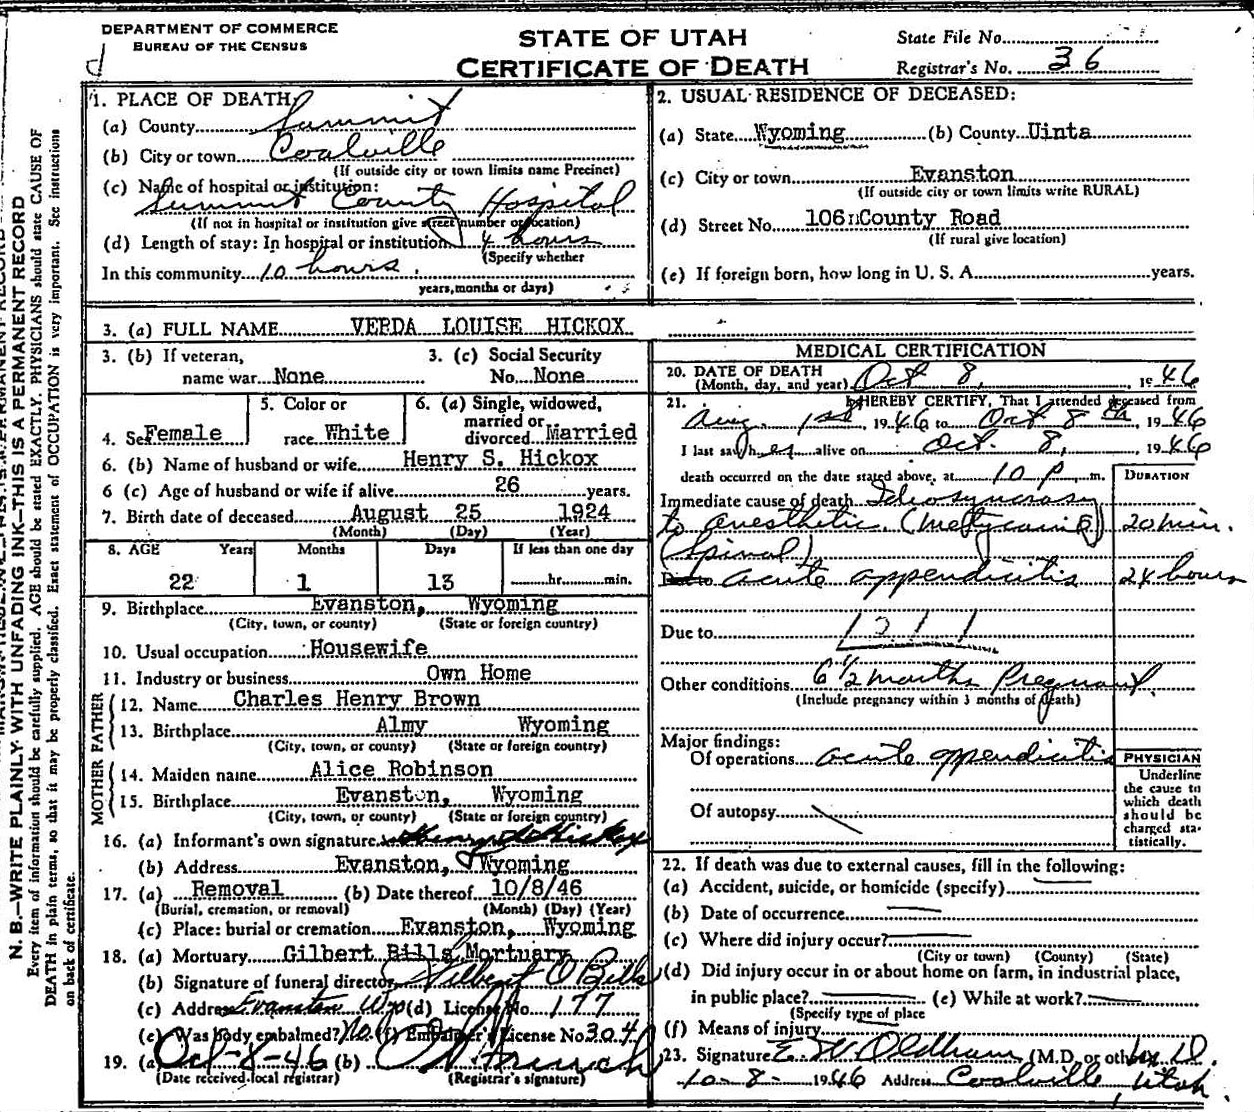 DEPARTMENT OF COMMERCE
BUREAU OF THE CENSUS
STATE OF UTAH
CERTIFICATE OF DEATH
State File No.
Registrar's No. 36
N. B.—WRITE PLAINLY WITH UNFADING INK—THIS IS A PERMANENT RECORD
Every item of information should be carefully supplied. AGE should be stated EXACTLY. PHYSICIANS should state CAUSE OF
DEATH in plain terms, so that it may be properly classified. Exact statement of OCCUPATION is very important. See instructions
on back of certificate.
1. PLACE OF DEATH
(a) County Summit
(b) City or town Coalville
(If outside city or town limits name Precinct)
(c) Name of hospital or institution:
Summit County Hospital
(If not in hospital or institution give street number or location)
(d) Length of stay: In hospital or institution 4 hours
(Specify whether
In this community 10 hours.
years, months or days)
2. USUAL RESIDENCE OF DECEASED:
(a) State Wyoming (b) County Uinta
(c) City or town Evanston
(If outside city or town limits write RURAL)
(d) Street No. 106 County Road
(If rural give location)
(e) If foreign born, how long in U. S. A. years.
3. (a) FULL NAME VERDA LOUISE HICKOX
3. (b) If veteran, name war None
3. (c) Social Security No. None
4. Sex Female
5. Color or race White
6. (a) Single, widowed, married or divorced Married
6. (b) Name of husband or wife Henry S. Hickox
6 (c) Age of husband or wife if alive 26 years.
7. Birth date of deceased August 25 1924
(Month) (Day) (Year)
8. AGE Years Months Days If less than one day
22 1 13 hr. min.
9. Birthplace Evanston, Wyoming
(City, town, or county) (State or foreign country)
10. Usual occupation Housewife
11. Industry or business Own Home
FATHER
12. Name Charles Henry Brown
13. Birthplace Almy Wyoming
(City, town, or county) (State or foreign country)
MOTHER
14. Maiden name Alice Robinson
15. Birthplace Evanston, Wyoming
(City, town, or county) (State or foreign country)
16. (a) Informant's own signature Henry S Hickox
(b) Address Evanston, Wyoming
17. (a) Removal (b) Date thereof 10/8/46
(Burial, cremation, or removal) (Month) (Day) (Year)
(c) Place: burial or cremation Evanston, Wyoming
18. (a) Mortuary Gilbert Bills Mortuary
(b) Signature of funeral director Gilbert O Bills
(c) Address Evanston Wyo (d) License No. 177
(e) Was body embalmed? No (f) Embalmer's License No. 304
19. (a) Oct-8-46 (b)
(Date received local registrar) (Registrar's signature)
MEDICAL CERTIFICATION
20. DATE OF DEATH
(Month, day, and year) Oct 8, 1946
21. I HEREBY CERTIFY, That I attended deceased from
Aug. 1st 1946 to Oct 8th, 1946
I last saw her alive on Oct. 8, 1946
death occurred on the date stated above, at 10 P. m.
DURATION
Immediate cause of death Idiosyncrasy
to anesthetic. (Metycaine) 20 min.
(Spinal)
Due to acute appendicitis 24 hours
Due to 1211
Other conditions 6 1/2 months Pregnant.
(Include pregnancy within 3 months of death)
Major findings:
Of operations acute appendicitis
Of autopsy
PHYSICIAN
Underline
the cause to
which death
should be
charged sta-
tistically.
22. If death was due to external causes, fill in the following:
(a) Accident, suicide, or homicide (specify)
(b) Date of occurrence
(c) Where did injury occur?
(City or town) (County) (State)
(d) Did injury occur in or about home on farm, in industrial place,
in public place? (e) While at work?
(Specify type of place
(f) Means of injury
23. Signature E. W. Oldham (M.D. or other) M.D.
10-8-1946 Address Coalville, Utah.